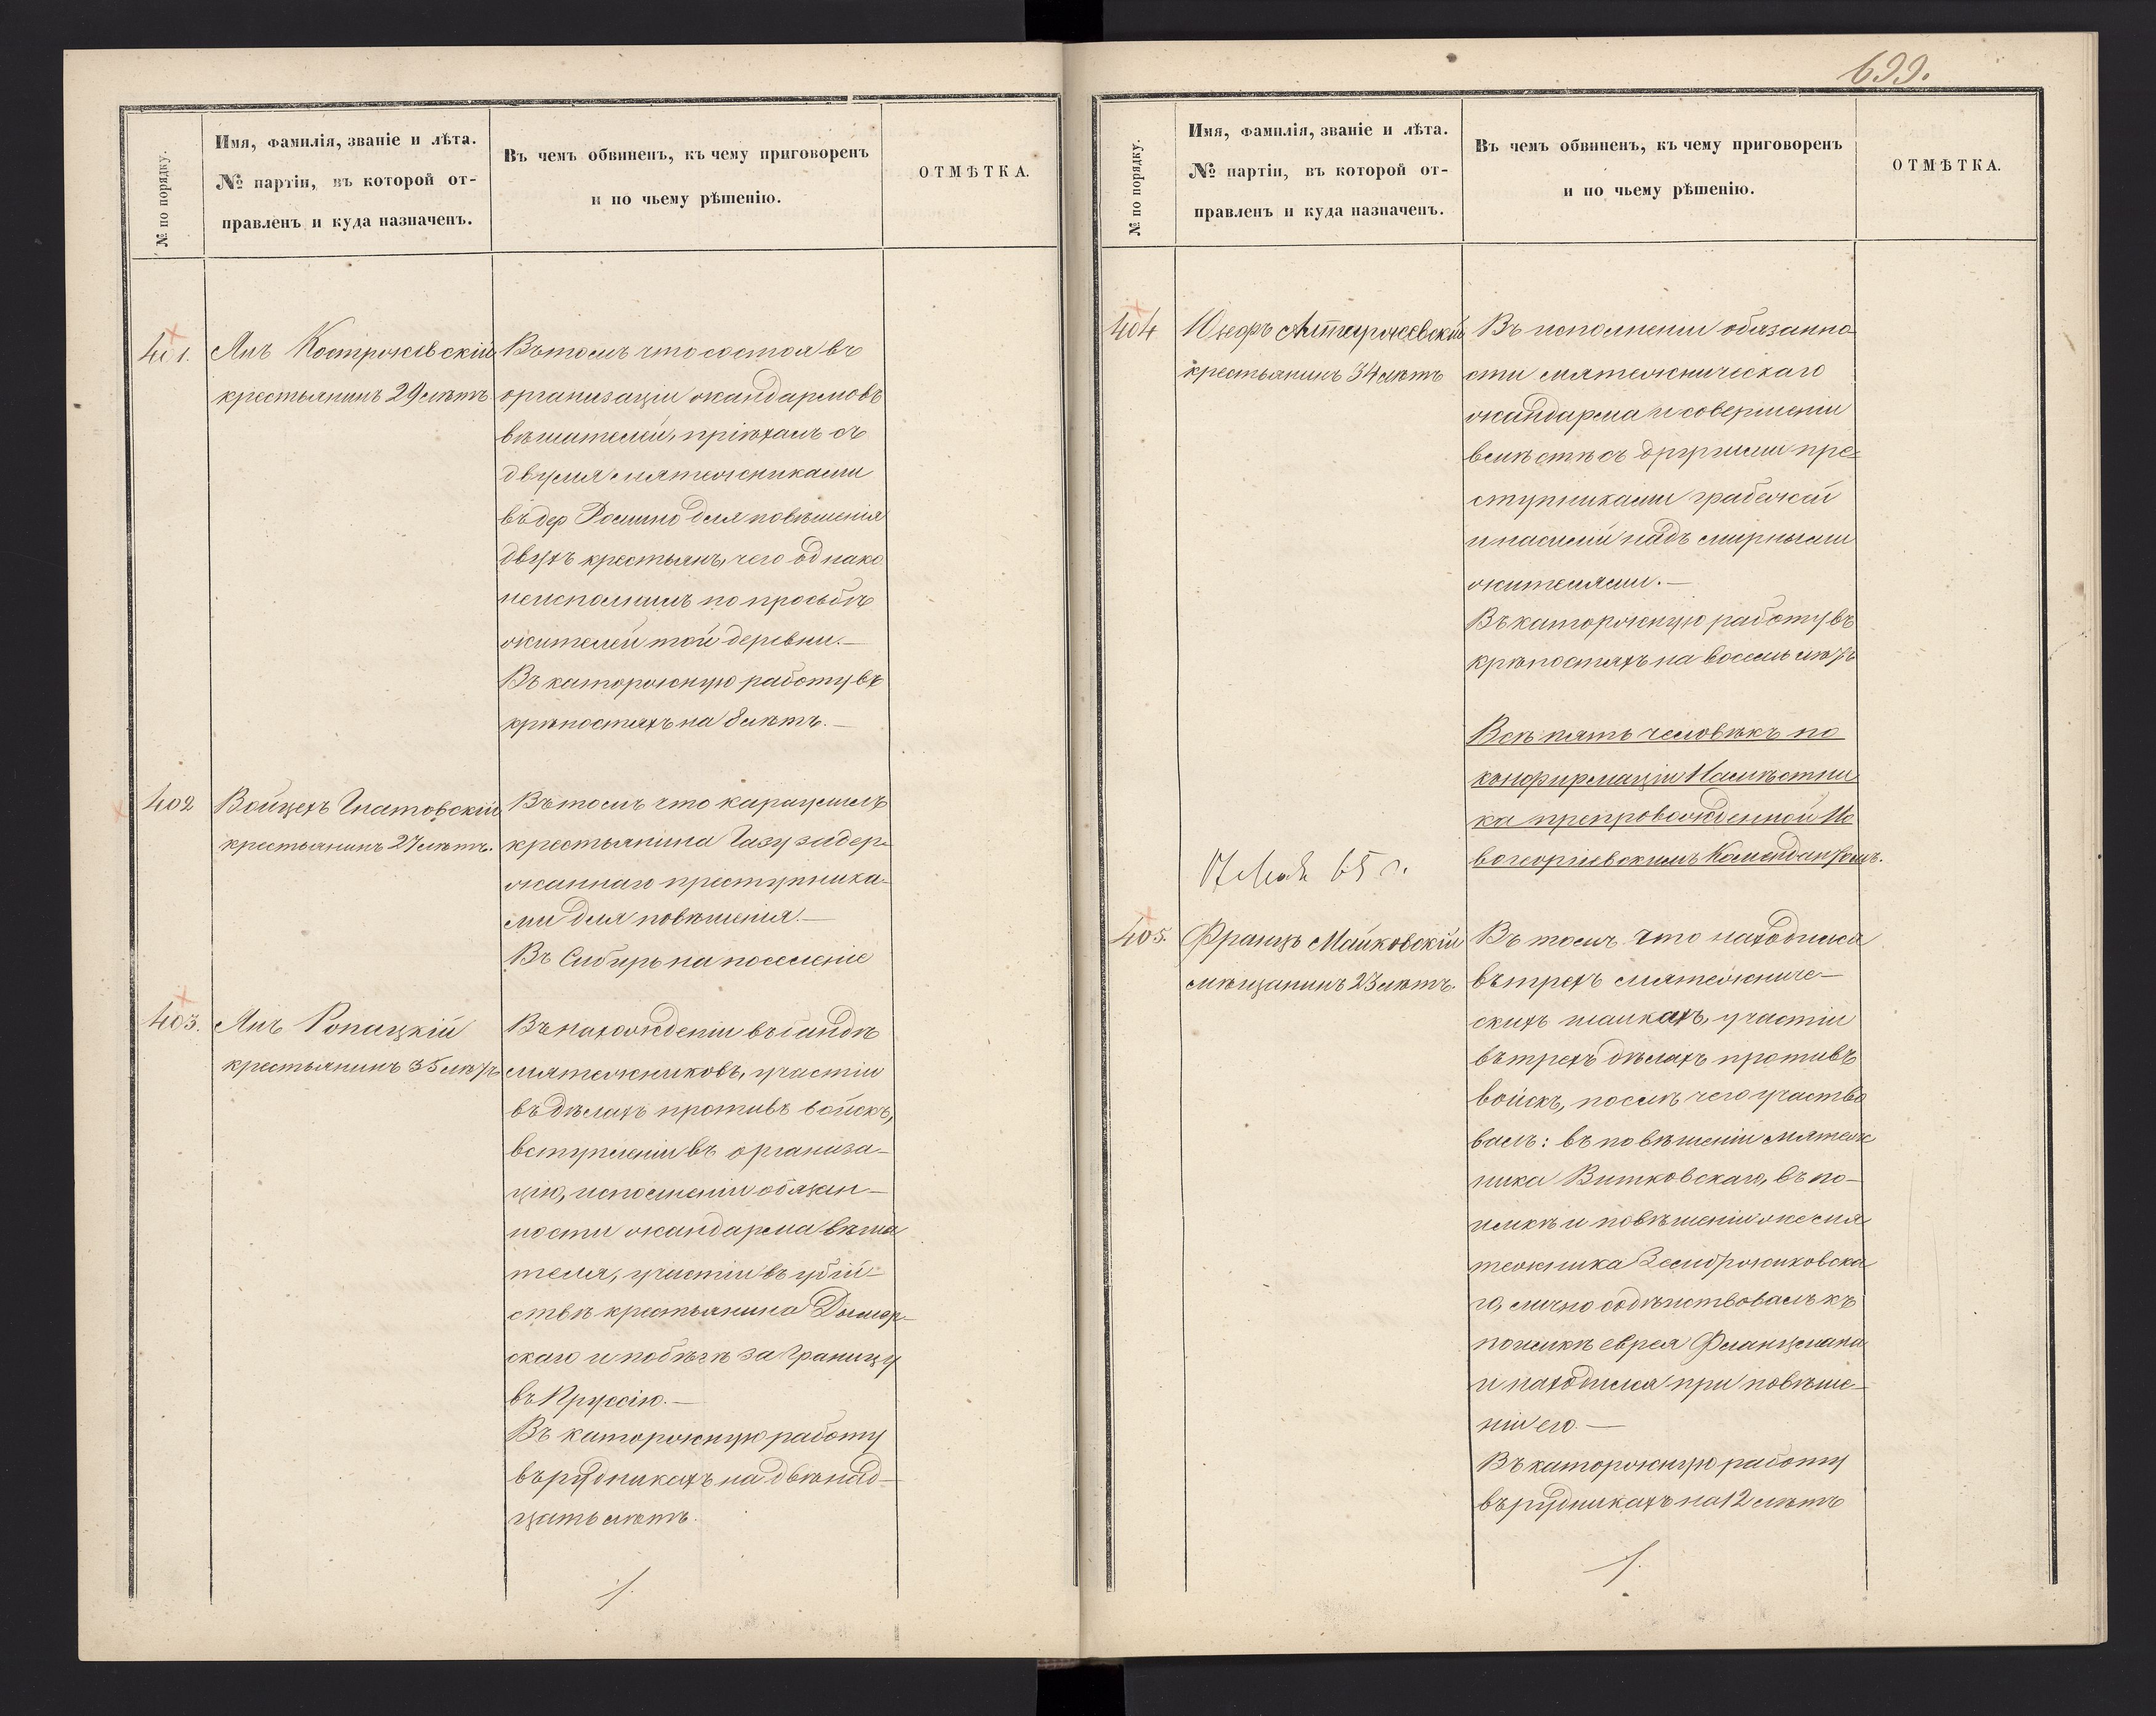 699.
№ по порядку.
Имя, фамилія, званіе и лѣта.
№ партіи, въ которой от-
правленъ и куда назначенъ.
Въ чемъ обвиненъ, къ чему приговоренъ
и по чьему рѣшенію.
ОТМѢТКА.
401.
Янъ Костржевскій
крестьянинъ 29 лѣтъ.
Въ томъ что состоя въ
организаціи жандармовъ
вѣшателей, пріѣхалъ съ
двумя мятежниками
въ дер для повѣшенія
двухъ крестьянъ, чего однако
неисполнилъ по просьбѣ
жителей той деревни.—
Въ каторжную работу въ
крѣпостяхъ на 8 лѣтъ.—
402
Войцехъ Гнатовскій
крестьянинъ 27 лѣтъ.
Въ томъ что караулилъ
крестьянина задер-
жаннаго преступника-
ми для повѣшенія.—
Въ Сибирь на поселеніе
403.
Янъ Ропацкій
крестьянинъ 35 лѣтъ
Въ нахожденіи въ бандѣ
мятежниковъ, участіи
въ дѣлахъ противъ войскъ,
вступленіи въ организа-
цію, исполненіи обязан-
ности жандарма вѣша
теля, участіи въ убій-
ствѣ крестьянина
скаго и побѣгѣ за границу
въ Пруссію.—
Въ каторжную работу
въ рудникахъ на двѣнад-
цать лѣтъ.
№ по порядку.
Имя, фамилія, званіе и лѣта.
№ партіи, въ которой от-
правленъ и куда назначенъ.
Въ чемъ обвиненъ, къ чему приговоренъ
и по чьему рѣшенію.
ОТМѢТКА.
404
Юзефъ
крестьянинъ 34 лѣтъ
Въ исполненіи обязанно
сти мятежническаго
жандарма и совершеніи
вмѣстѣ съ другими пре=
ступниками грабежей
и насилій надъ мирными
жителями.—
Въ каторжную работу въ
крѣпостяхъ на восемь лѣтъ
Всѣ пять человѣкъ по
конфирмаціи Намѣстни
ка препровожденной Но
вогеоргіевскимъ Комендантомъ.
17 65 г.
405.
Францъ Майковскій
мѣщанинъ 23 лѣтъ.
Въ томъ что находился
въ трехъ мятежниче-
скихъ шайкахъ, участіи
въ трехъ дѣлахъ противъ
войскъ, послѣ чего участво
валъ: въ повѣшеніи мятеж
ника Витковскаго, въ по-
имкѣ и повѣшеніи же мя
тежника
го, лично содѣйствовалъ къ
поимкѣ еврея
и находился при повѣше-
ніи его.—
Въ каторжную работу
въ рудникахъ на 12 лѣтъ